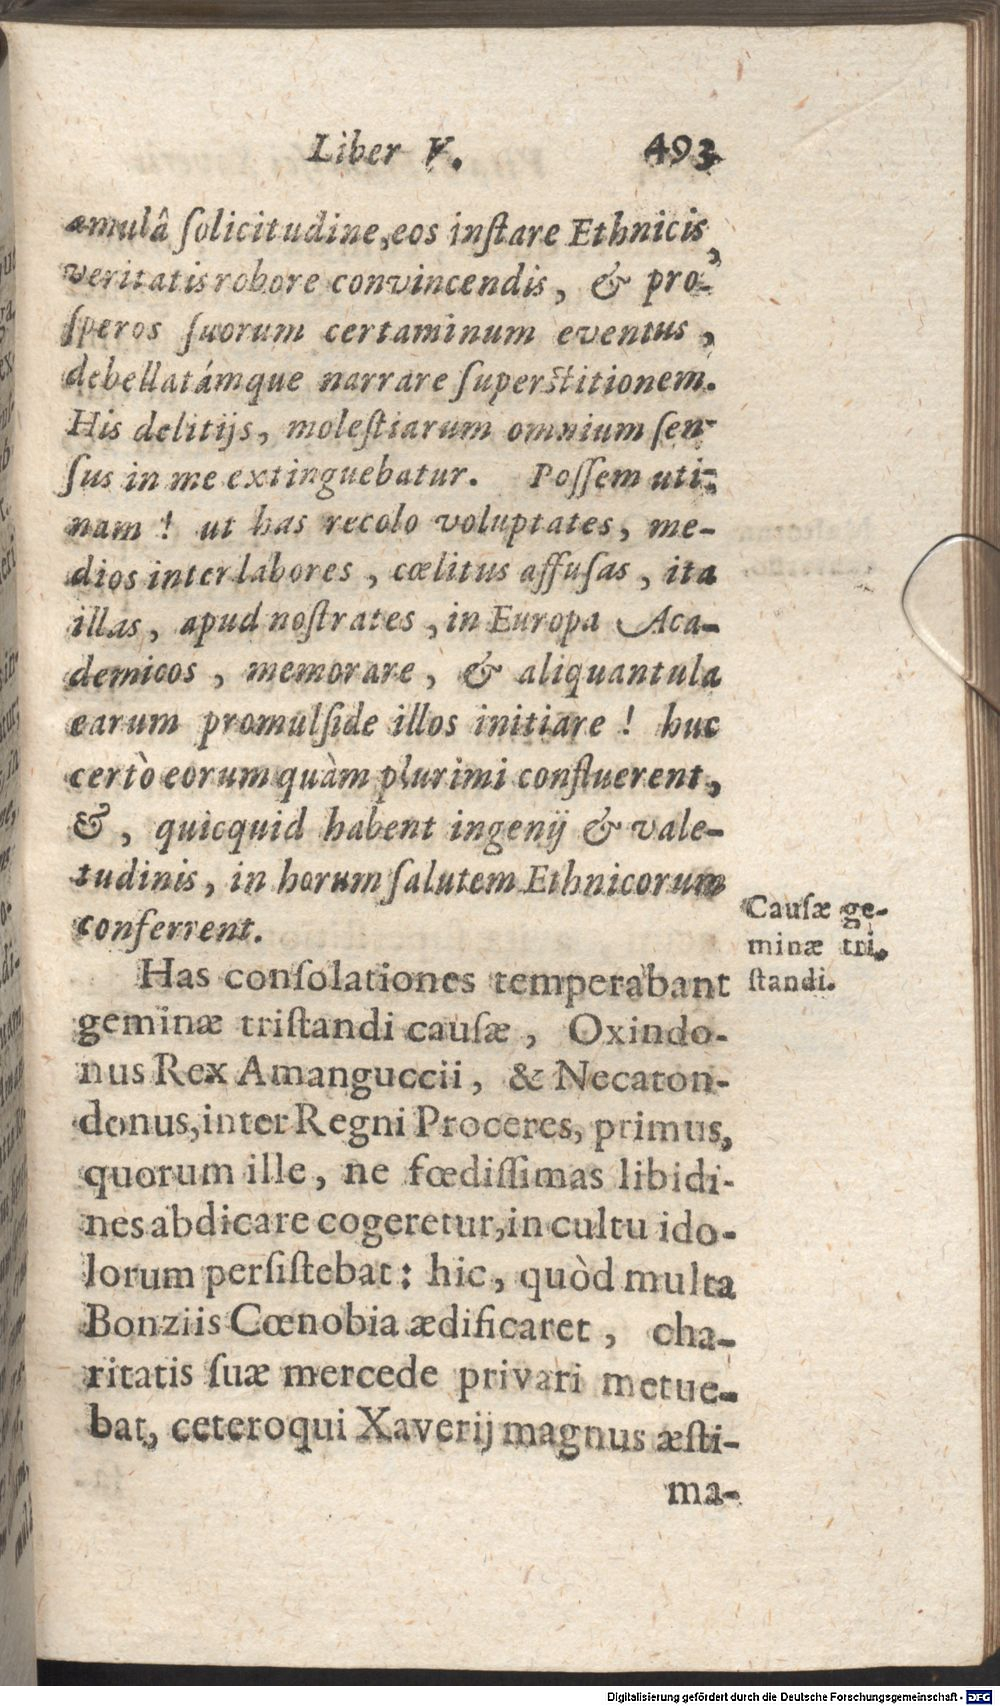 Liber V. 493
æmulâ ſolicitudine, eos inſtare Ethnicis,
veritatis robore convincendis, & pro-
ſperos ſuorum certaminum eventus,
debellatámque narrare ſuperſtitionem.
His delitijs, moleſtiarum omnium ſen-
ſus in me extinguebatur. Poſſem uti-
nam! ut has recolo voluptates, me-
dios inter labores, cœlitus affuſas, ita
illas, apud noſtrates, in Europa Aca-
demicos, memorare, & aliquantula
earum promulſide illos initiare! huc
certò eorum quàm plurimi confluerent,
&, quicquid habent ingenij & vale-
tudinis, in horum ſalutem Ethnicorum
conferrent.
Has conſolationes temperabant
geminæ triſtandi cauſæ, Oxindo-
nus Rex Amanguccii, & Necaton-
donus, inter Regni Proceres, primus,
quorum ille, ne fœdiſſimas libidi-
nes abdicare cogeretur, in cultu ido-
lorum perſiſtebat: hic, quòd multa
Bonziis Cœnobia ædificaret, cha-
ritatis ſuæ mercede privari metue-
bat, ceteroqui Xaverij magnus æſti-
ma-
Cauſæ ge-
minæ tri-
ſtandi.
Digitalisierung gefördert durch die Deutsche Forschungsgemeinschaft - DFG